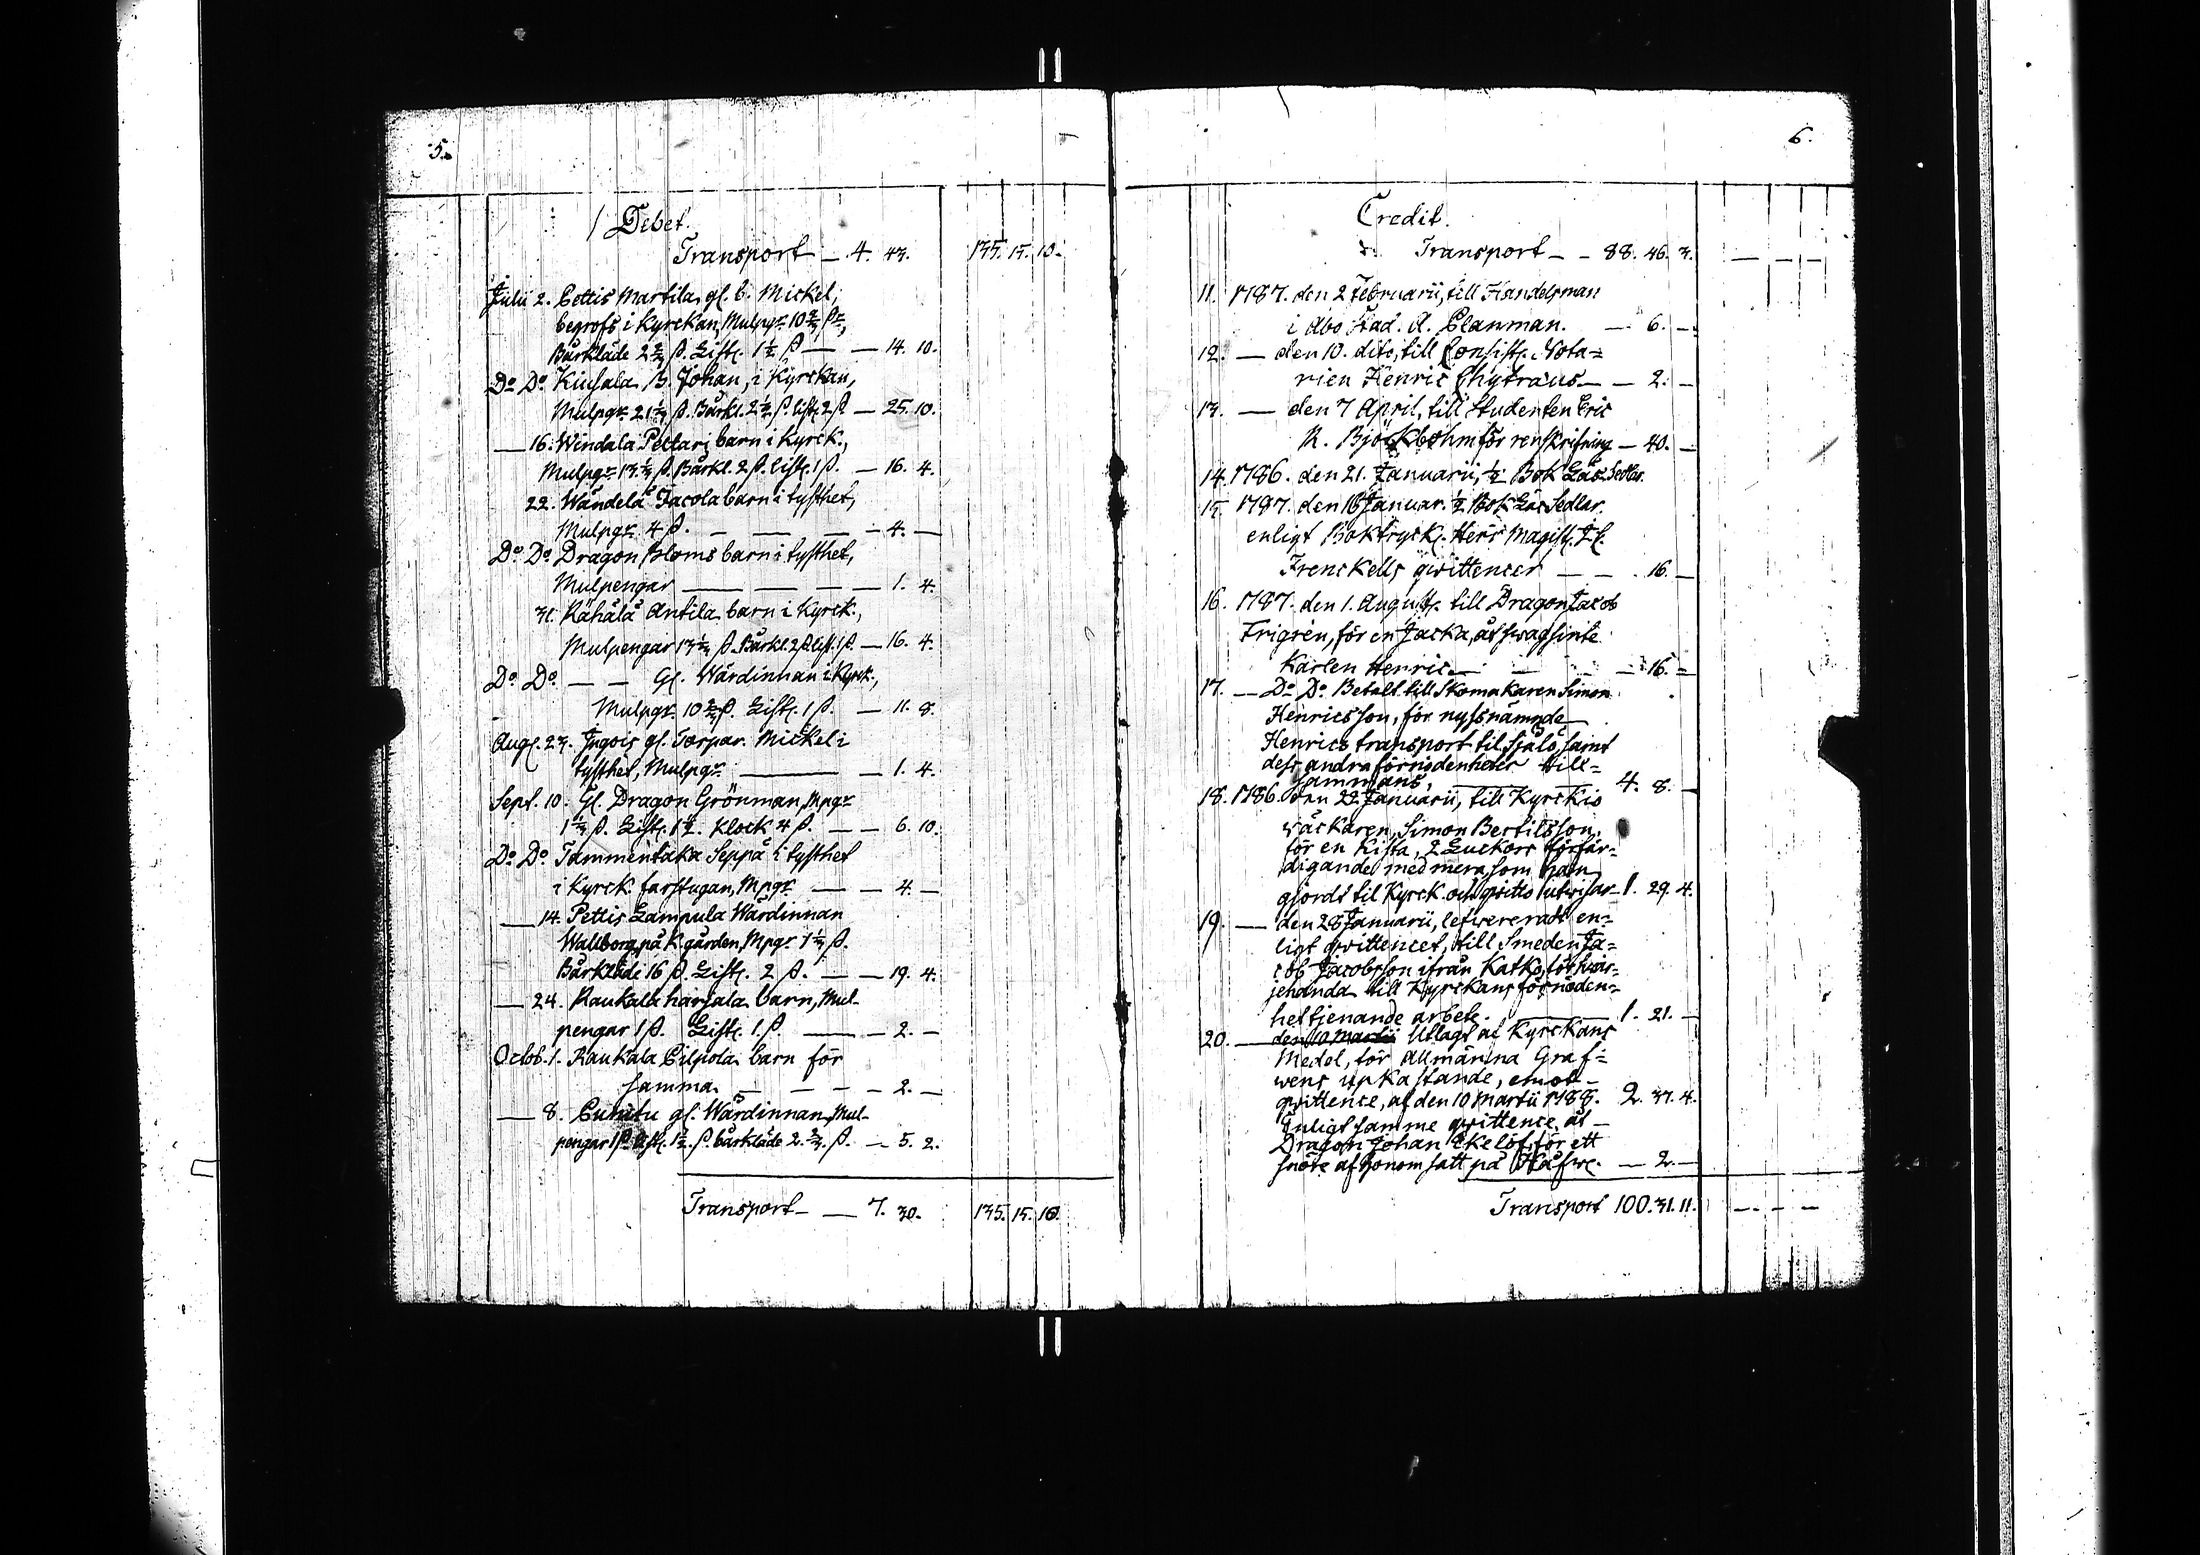 5.
Debet.
Transport — 4. 43. 135. 15. 10.
Julii 2. Pettis Martila gl. b. Mickel,
begrofs i Kyrckan, Mulpgr 10 2/3 ſz,
Bårkläde 2 2/3 ß. Liſt. 1 1/2 ß — — 14. 10.
Do Do Kiusala B. Johan, i Kyrckan,
Mulpgr 21 1/3 ß. Bårkl. 2 1/2 ß. liſt. 2 ß — 25. 10.
— 16. Windala Pettari barn i Kyrck.,
Mulpgr 13 1/3 ß. Bårkl. 2 ß. liſt. 1 ß. — 16. 4.
22. Wändelä Jacola barn i tysthet,
Mulpgr 4 ß. — — — 4. —
Do Do Dragon Bloms barn i tysthet,
Mulpengar — — — 1. 4.
31. Rähälä Antila barn i Kyrck.,
Mulpengar 13 1/3 ß. Bårkl. 2 ß liſt. 1 ß. — 16. 4.
Do Do — — Gl. Wärdinnan i Kyrck.,
Mulpgr. 10 2/3 ß. Liſt. 1 ß. — 11. 8.
Augſ. 23. Ingois gl. Torpar. Mickel i
tysthet, Mulpgr — — 1. 4.
Sept. 10. Gl. Dragon Grönman, Mpgr
1 1/3 ß. Liſt. 1 1/2. Klock 4 ß. — — 6. 10.
Do Do Tammentaka Seppä i tysthet
i Kyrck. farstugan, Mpgr — — 4. —
— 14. Pettis Lampula Wärdinnan
Wallborg på K. gården, Mpgr 1 1/3 ß.
Bårkläde 16 ß. Liſt. 2 ß. — — 19. 4.
— 24. Raukala harjala barn, Mul-
pengar 1 ß. Liſt. 1 ß. — — 2. —
Octob. 1. Raukala Pilpola barn för
samma — — — 2. —
— 8. gl. Wärdinnan, Mul-
pengar 1 ß. liſt. 1 1/2 ß. bårkläde 2 2/3 ß. — 5. 2.
Transport — — 7. 30. 135. 15. 10.
6.
Credit.
Transport — — 88. 46. 3. — — —
11. 1787. den 2 Februarii, till Handelsman
i Åbo Stad. A. Planman. — 6. —
12. — den 10. dito, till Consist. Nota=
rien Henric Chytraus — — 2. —
13. — den 7 April, till Studenten Eric
R. Björkbohm för renskrifning — 40. —
14. 1786. den 21. Januarii, 1/2 Bok Läs Sedlar.
15. 1787. den 16 Januar. 1/2 Bok Läs Sedlar
enligt Boktryck. Herr Magiſt.
Frenckells qwittencer — — 16. —
16. 1787. den 1. August. till Dragon Jacob
Frigrén, för en Jacka, åt swagsinte
Karlen Henric — — — 16. —
17. — Do Do Betalt till Skomakaren Simon
Henricsson, för nyssnämnde
Henrics transport til Själö, samt
dess andra förnödenheter till=
sammans, — 4. 8. —
18. 1786. den 22 Januarii, till Kyrckio
wäckaren, Simon Bertilsson,
för en Kista, 2 Luckors förfär=
digande med mera, som han
gjordt til Kyrck. och qwitto utwisar — 1. 29. 4.
19. — den 28 Januarii, lefwereradt en=
ligt qwittencet, till Smeden Ja=
cob Jacobsson ifrån Katko, för hwar=
jehanda till Kyrckans förnöden=
het tjenande arbete. — 1. 21. —
20. — den 10 Martii Utlagt af Kyrckans
Medel, för Allmänna Graf=
wens upkastande, emot
qwittence, af den 10 Martii 1788. 2. 37. 4.
Enligt samme qwittence, åt
Dragon Johan Ekelöf, för ett
snöre af honom satt på — 2. —
Transport 100. 31. 11. — — —